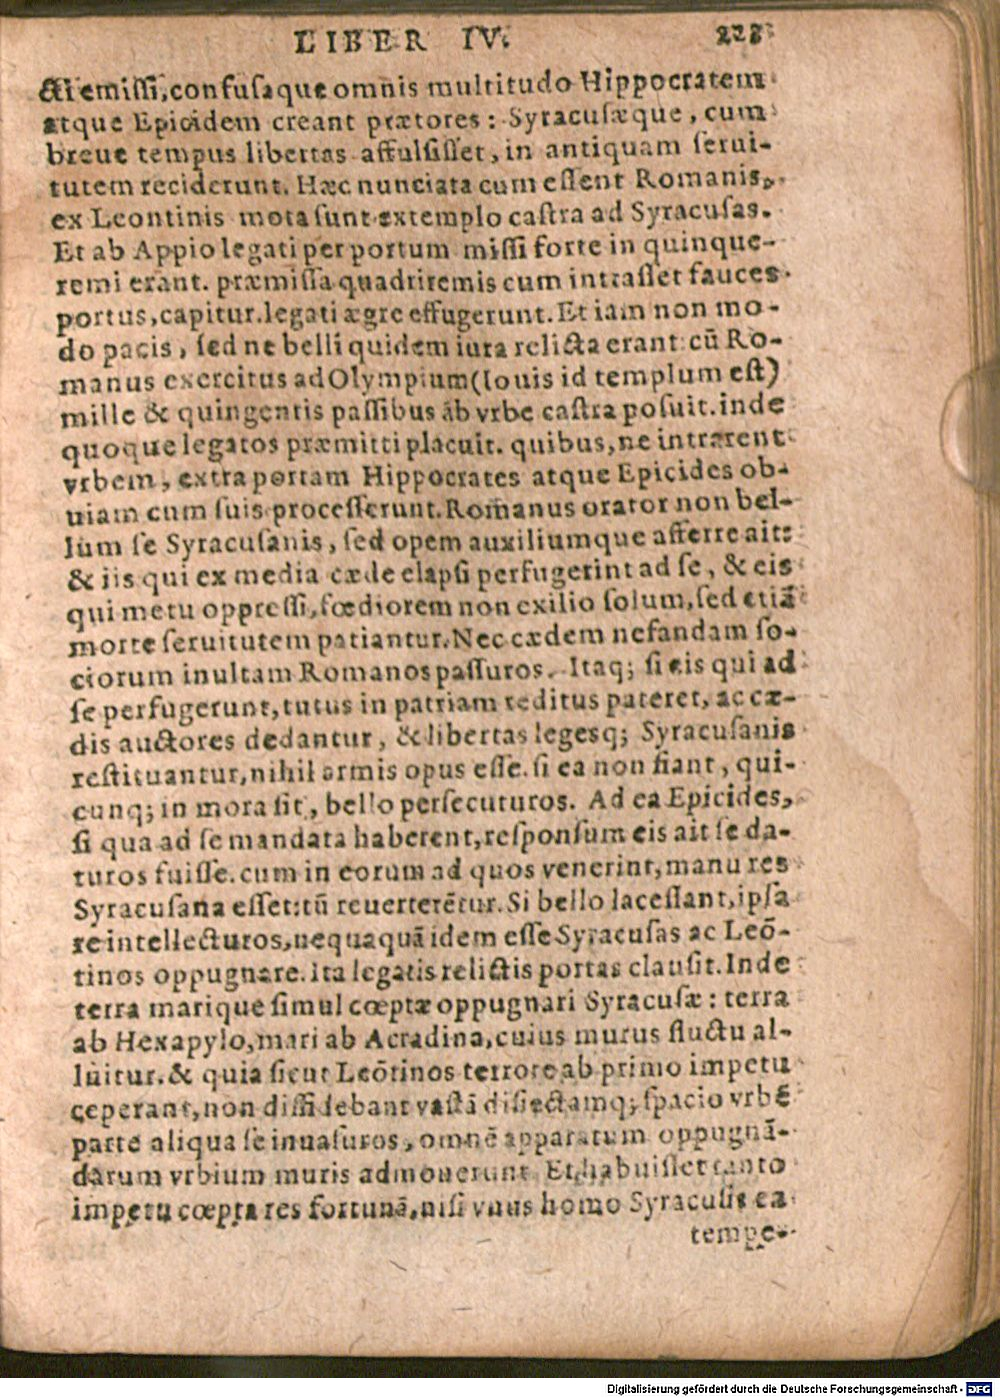 LIBER IV. 223
cti emiſſi, confuſaque omnis multitudo Hippocratem
atque Epicidem creant prætores: Syracuſæque, cum
breue tempus libertas affulſiſſet, in antiquam ſerui-
tutem reciderunt. Hæc nunciata cum eſſent Romanis,
ex Leontinis mota ſunt extemplo caſtra ad Syracuſas.
Et ab Appio legati per portum miſſi forte in quinque-
remi erant. præmiſſa quadriremis cum intraſſet fauces
portus, capitur. legati ægre effugerunt. Et iam non mo-
do pacis, ſed ne belli quidem iura relicta erant: cū Ro-
manus exercitus ad Olympium (Iouis id templum eſt)
mille & quingentis paſſibus ab vrbe caſtra poſuit. inde
quoque legatos præmitti placuit. quibus, ne intrarent
vrbem, extra portam Hippocrates atque Epicides ob-
uiam cum ſuis proceſſerunt. Romanus orator non bel-
lum ſe Syracuſanis, ſed opem auxiliumque afferre ait:
& iis qui ex media cæde elapſi perfugerint ad ſe, & eis
qui metu oppreſſi, fœdiorem non exilio ſolum, ſed etiā
morte ſeruitutem patiantur. Nec cædem nefandam ſo-
ciorum inultam Romanos paſſuros. Itaq; ſi eis qui ad
ſe perfugerunt, tutus in patriam reditus pateret, ac cæ-
dis auctores dedantur, & libertas legesq; Syracuſanis
reſtituantur, nihil armis opus eſſe. ſi ea non fiant, qui-
cunq; in mora ſit, bello perſecuturos. Ad ea Epicides,
ſi qua ad ſe mandata haberent, reſponſum eis ait ſe da-
turos fuiſſe. cum in eorum ad quos venerint, manu res
Syracuſana eſſet: tū reuerterētur. Si bello laceſſant, ipſa
re intellecturos, nequaquā idem eſſe Syracuſas ac Leō-
tinos oppugnare. Ita legatis relictis portas clauſit. Inde
terra marique ſimul cœptæ oppugnari Syracuſæ: terra
ab Hexapylo, mari ab Acradina, cuius murus fluctu al-
luitur. & quia ſicut Leōtinos terrore ab primo impetu
ceperant, non diffidebant vaſtā diſiectamq; ſpacio vrbē
parte aliqua ſe inuaſuros, omnē apparatum oppugnā-
darum vrbium muris admouerunt. Et habuiſſet tanto
impetu cœpta res fortunā, niſi vnus homo Syracuſis ea
tempe-
Digitalisierung gefördert durch die Deutsche Forschungsgemeinschaft - DFG